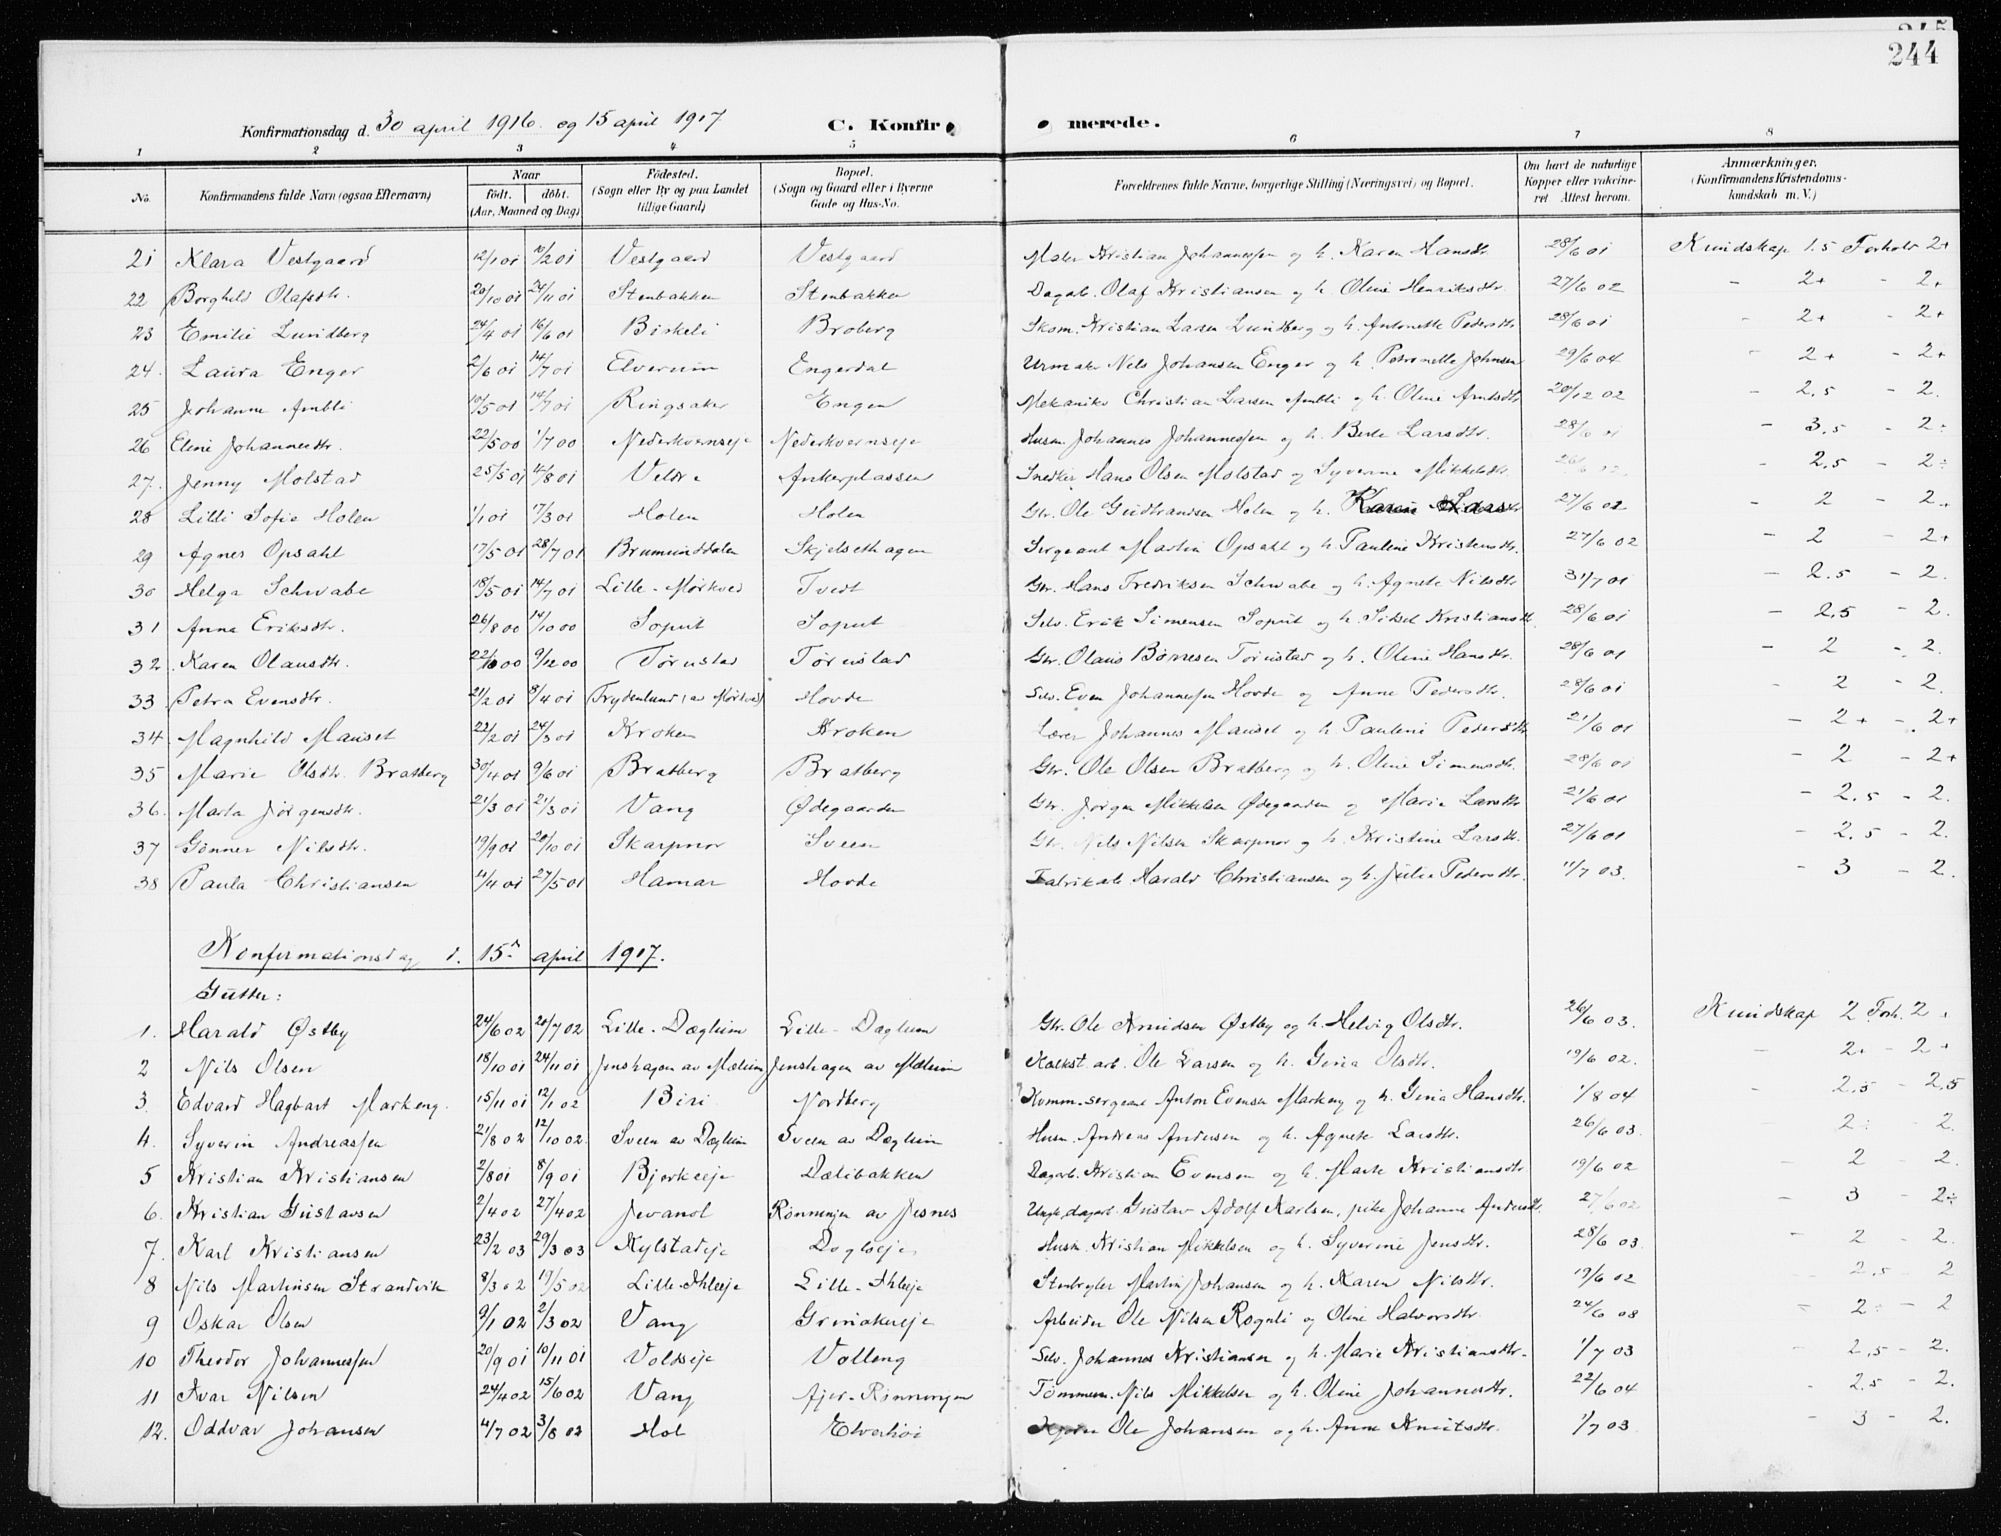 245
244
Konfirmationsdag d. 30 april 1916. og 15 april 1917 C. Konfir merede.
1 2 3 4 5 6 7 8
No. Konfirmandens fulde Navn (ogsaa Efternavn) Naar født. døbt. (Aar, Maaned og Dag) Fødested. (Sogn eller By og paa Landet tillige Gaard) Bopæl. (Sogn og Gaard eller i Byerne Gade og Hus-No. Forældrenes fulde Navne, borgerlige Stilling (Næringsvei) og Bopæl. Om havt de naturlige Kopper eller vakcineret. Attest herom. Anmærkninger. (Konfirmandens Kristendomskundskab m. V.)
21 Klara Vestgaard 12/1 01 10/2 01 Vestgaard Vestgaard Maler Kristian Johannessen og h. Karen Hansdtr. 28/6 01 Kundskap 1.5 Forhold 2+
22 Borghild Olafsdtr. 20/10 01 24/11 01 Stenbakken Stenbakken Dagarb. Olaf Kristiansen og h. Oline Henriksdtr. 27/6 02 - 2+ - 2+
23 Emilie Lundberg 24/4 01 16/6 01 Birkeli Broberg Skom. Kristian Larsen Lundberg og h. Antonette Pedersdtr 28/6 01 - 2+ - 2+
24. Laura Enger 2/6 01 14/7 01 Elverum Engerdal Urmaker Nils Johansen Enger og h. Petronelle Johnsen 29/6 04 - 2+ - 2+
25 Johanne Ambli 10/5 01 14/7 01 Ringsaker Engen Mekaniker Christian Larsen Ambli og h. Oline Arntsdtr 20/12 02 - 2,5 - 2.
26 Eline Johannesdtr. 22/5 00 1/7 00 Nederkvernseje Nederkvernseje Husm. Johannes Johannessen og h. Berte Larsdtr. 28/6 01 - 3,5 - 2÷
27. Jenny Molstad 25/5 01 4/8 01 Veldre Ankerplassen Snedker Hans Olsen Molstad og Syverine Mikkelsdtr 26/6 02 - 2,5 - 2÷
28 Lilli Sofie Holen 1/1 01 17/3 01 Holen Holen Gbr. Ole Gudbrandsen Holen og h. Karen Larsdtr 27/6 02 - 2 - 2+
29 Agnes Opsahl 17/5 01 28/7 01 Brumunddalen Skjelsethagen Sergeant Martin Opsahl og h. Pauline Kristensdtr. 27/6 02 - 2 - 2+
30 Helga Schwabe 18/5 01 14/7 01 Lille-Mørkved Tvedt Gbr. Hans Fredriksen Schwabe og h. Agnete Nilsdtr 31/7 01 - 2.5 - 2.
31 Anna Eriksdtr. 26/8 00 14/10 00 Soput Soput Selv. Erik Simensen Soput og h. Sidsel Kristiansdtr. 28/6 01 - 2,5 - 2.
32. Karen Olausdtr. 22/10 00 9/12 00 Tørustad Tørustad Gbr. Olaus Børresen Tørustad og h. Oline Hansdtr. 28/6 01 - 2 - 2.
33. Petra Evensdtr. 21/2 01 8/4 01 Frydenlund (av Mørkved) Hovde Selv. Even Johannessen Hovde og Anne Pedersdtr. 28/6 01 - 2 - 2.
34. Magnhild Mauset 22/2 01 24/3 01 Kroken Kroken Lærer Johannes Mauset og h. Pauline Pedersdtr 21/6 01 - 2+ - 2+
35 Marie Olsdtr. Bratberg 30/4 01 9/6 01 Bratberg Bratberg Gbr. Ole Olsen Bratberg og h. Oline Simensdtr. 28/6 01 - 2 - 2+
36. Marta Jørgensdtr. 21/3 01 21/3 01 Vang Ødegaarden Gbr. Jørgen Mikkelsen Ødegaarden og Marie Larsdtr 21/6 01 - 2.5 - 2.
37 Gønner Nilsdtr. 19/9 01 20/10 01 Skarpnor Sveen Gbr. Nils Nilsen Skarpnor og h. Kristine Larsdtr. 27/6 01 - 2.5 - 2.
38 Paula Christiansen 4/4 01 27/5 01 Hamar Hovde Fabrikarb. Harald Christiansen og h. Julie Pedersdtr. 11/7 03. - 3 - 2.
Konfirmationsdag d. 15de april 1917.
Gutter:
1. Harald Østby 24/6 02 20/7 02 Lille-Dæglum Lille-Dæglum Gbr. Ole Knudsen Østby og h. Helvig Olsdtr. 26/6 03. Kundskap 2 Forh. 2+
2 Nils Olsen 18/10 01 24/11 01 Jenshagen av Mælum Jenshagen av Mælum Kalkst.arb. Ole Larsen og h. Gina Olsdtr. 19/6 02. - 2+ - 2+
3. Edvard Hagbart Markeng. 15/11 01 12/1 02 Biri Nordberg Komm.sergeant Anton Evensen Markeng og h. Gina Hansdtr. 1/8 04 - 2,5 - 2,5
4. Syverin Andreassen 21/8 02 12/10 02. Sveen av Dæglum Sveen av Dæglum Husm. Andreas Andersen og h. Agnete Larsdtr. 26/6 03. - 2÷ - 2.
5 Kristian Kristiansen 2/8 01 8/9 01 Bjerkeeje Dælibakken Dagarb. Kristian Evensen og h. Marte Kristiansdtr 19/6 02 - 2 - 2.
6. Kristian Gustavsen 2/4 02 27/4 02 Jevanol Rønningen av Jesnes Ungk. dagarb. Gustav Adolf Karlsen, pike Johanne Andersdtr. 27/6 02 - 3 - 2÷
7. Karl Kristiansen 23/2 03 29/3 03 Kylstadeje Dogloeje Husm. Kristian Mikkelsen og h. Syverine Jensdtr. 28/6 03. - 2 - 2.
8 Nils Martinsen Strandvik 8/3 02 19/5 02 Lille-Ihleeje Lille-Ihleeje Stenbryter Martin Johansen og h. Karen Nilsdtr. 19/6 02 - 2,5 - 2
9 Oskar Olsen 9/1 02 2/3 02 Vang Grimakereje Arbeider Ole Nilsen Rognli og Oline Halvorsdtr. 24/6 08 - 2÷ - 2
10 Theodor Johannessen 20/9 01 10/11 01 Voldseje Volleng Selv. Johannes Kristiansen og h. Marie Kristiansdtr. 1/7 03 - 2,5 - 2.
11 Ivar Nilsen 24/4 02 15/6 02 Vang Ajer-Rønningen Tømmerm. Nils Mikkelsen og h. Oline Johannesdtr. 22/6 04 - 2.5 - 2.
12. Oddvar Johansen 4/7 02 3/8 02 Hol Elverhøi Ole Johansen og h. Anne Knutsdtr. 1/7 03 - 3 - 2.